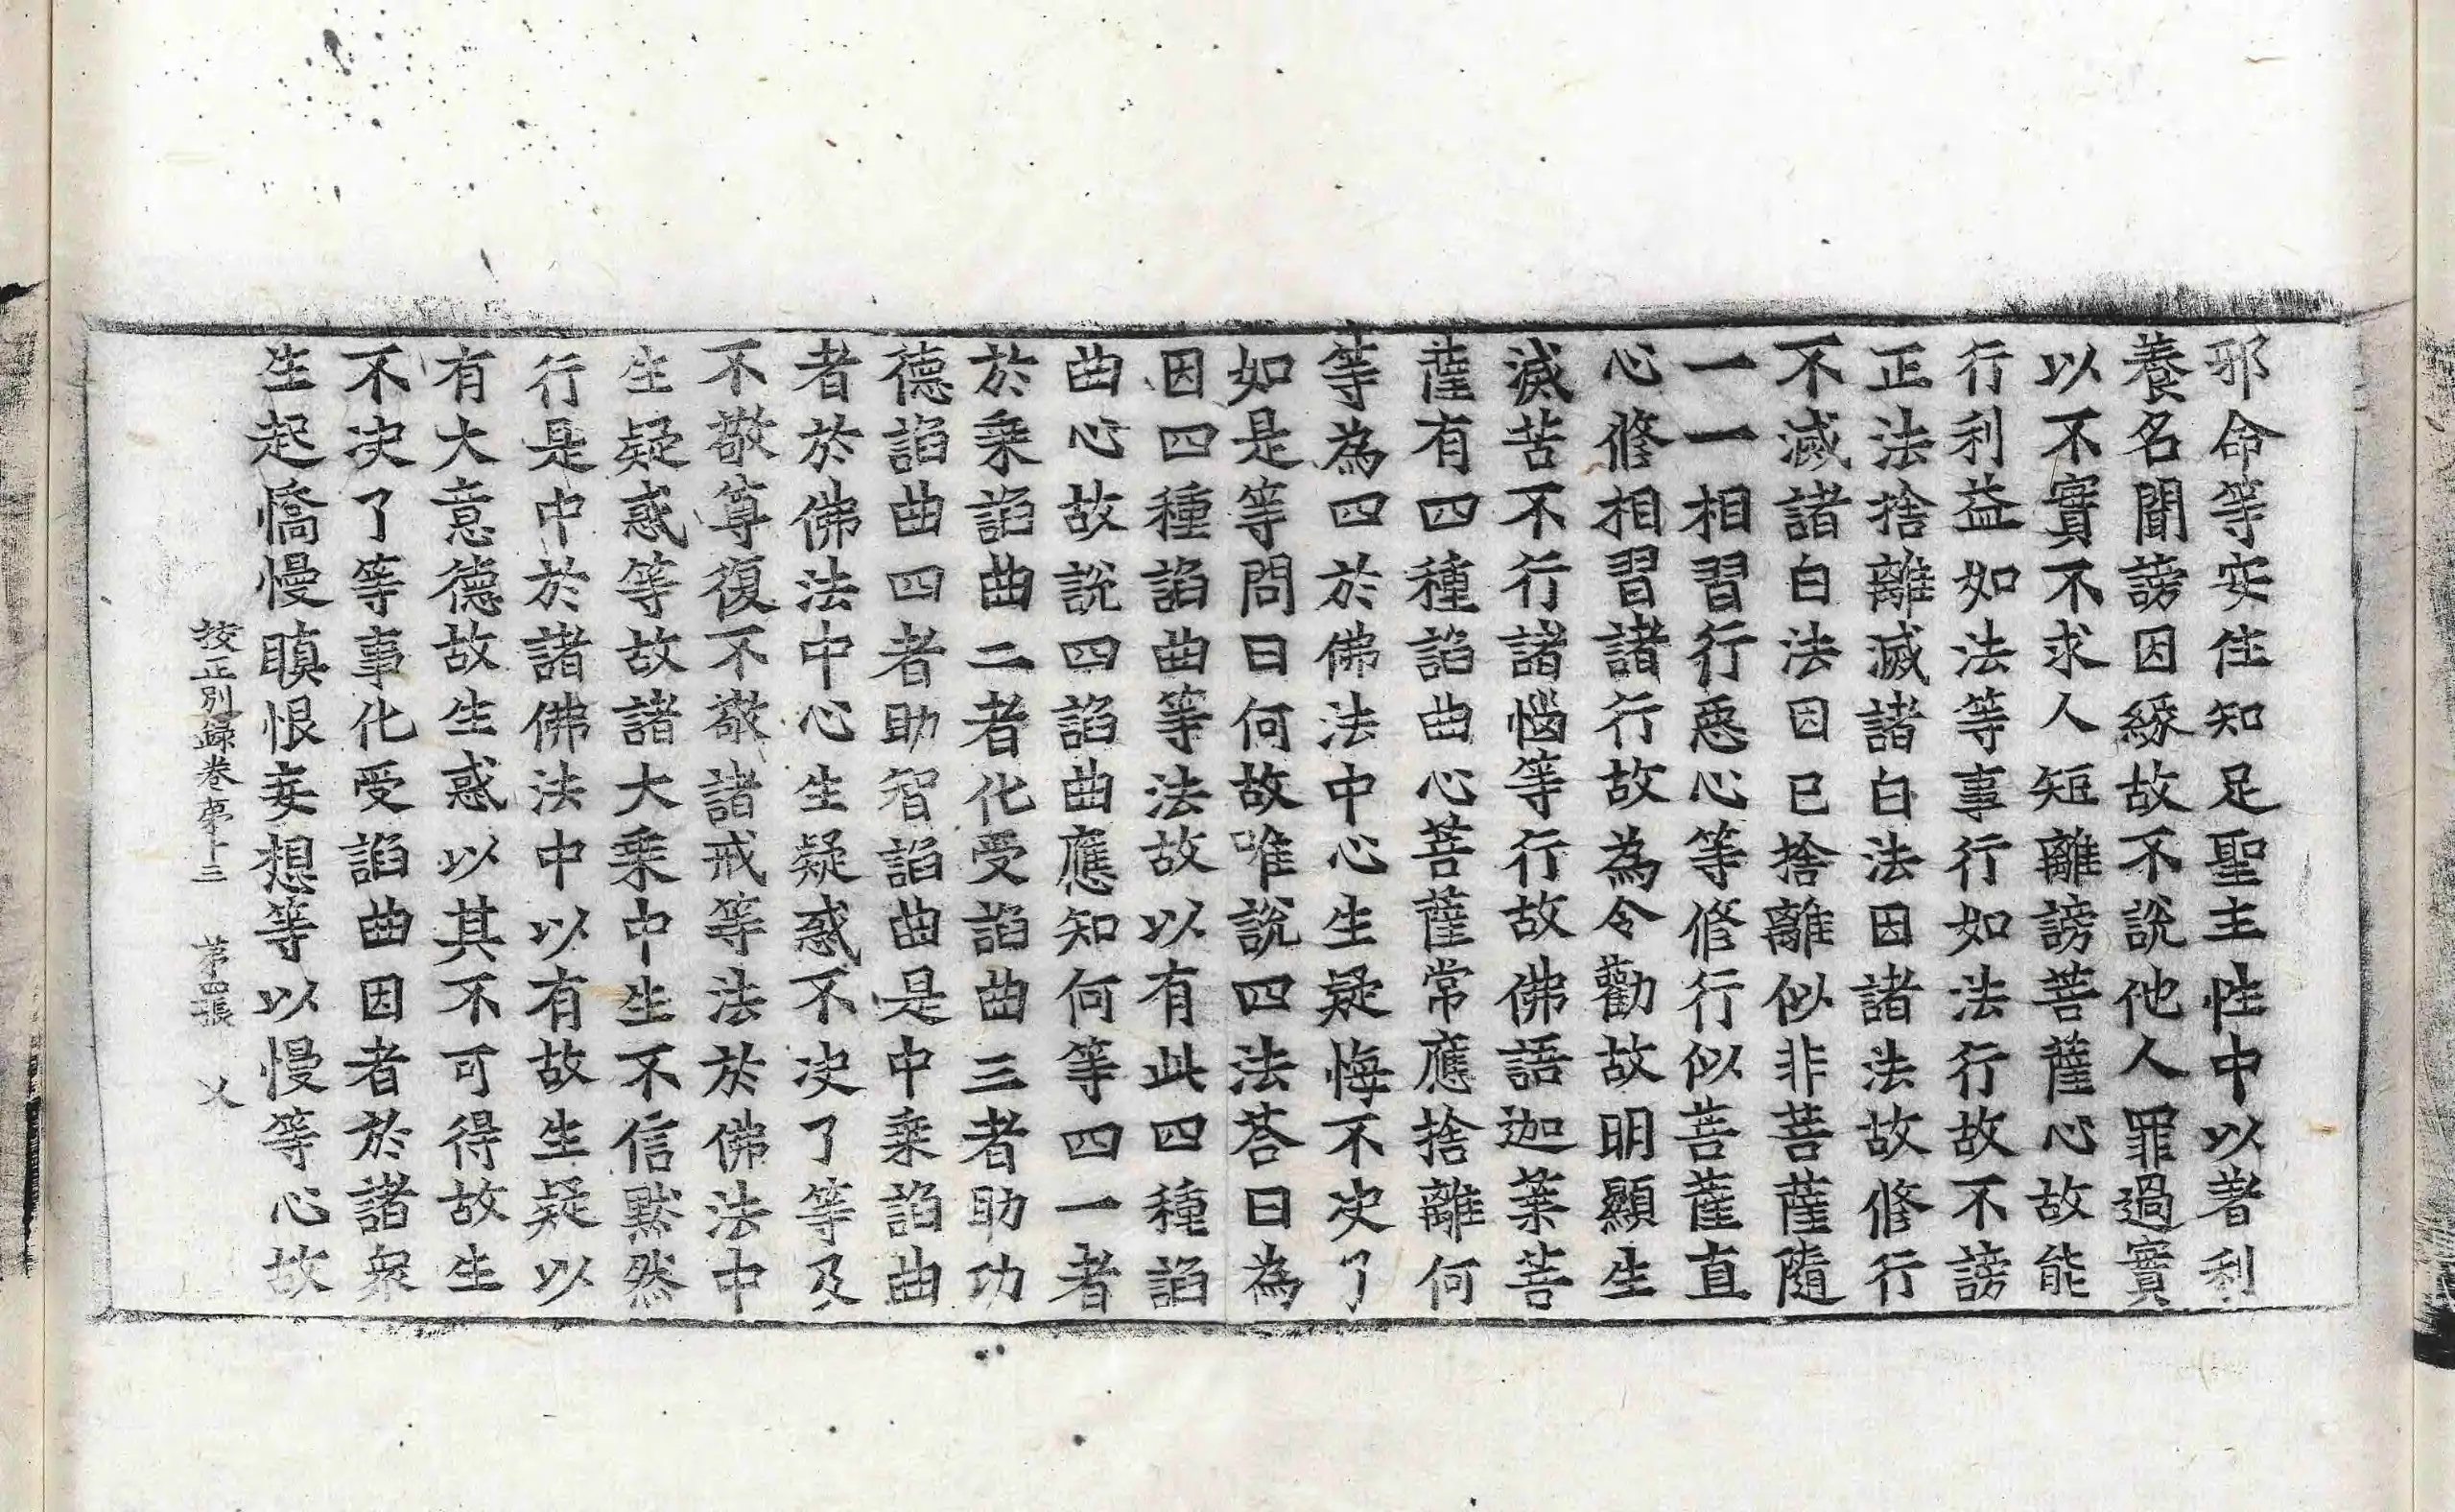 邪命等安住知足聖主性中以著利
養名聞謗因緣故不說他人罪過實
以不實不求人短離謗菩薩心故能
行利益如法等事行如法行故不謗
正法捨離滅諸白法因諸法故修行
不滅諸白法因已捨離似非菩薩隨
一一相習行惡心等修行似菩薩直
心修相習諸行故為令勸故明顯生
滅苦不行諸惱等行故佛語迦葉菩
薩有四種諂曲心菩薩常應捨離何
等為四於佛法中心生疑悔不決了
如是等問曰何故唯說四法荅曰為
因四種諂曲等法故以有此四種諂
曲心故說四諂曲應知何等四一者
於乘諂曲二者化受諂曲三者助功
德諂曲四者助智諂曲是中乘諂曲
者於佛法中心生疑惑不決了等及
不敬尊復不敬諸戒等法於佛法中
生疑惑等故諸大乘中生不信默然
行是中於諸佛法中以有故生疑以
有大意德故生惑以其不可得故生
不決了等事化受諂曲因者於諸衆
生起憍慢瞋恨妄想等以慢等心故
挍正別錄卷第十三 第四張 乂